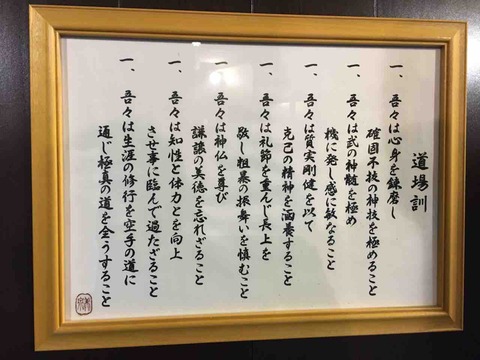 道場訓
一、吾々は心身を錬磨し
確固不抜の神技を極めること
一、吾々は武の神髄を極め
機に発し感に敏なること
一、吾々は質実剛健を以て
克己の精神を涵養すること
一、吾々は礼節を重んじ長上を
敬し粗暴の振舞いを慎むこと
一、吾々は神仏を尊び
謙譲の美徳を忘れざること
一、吾々は知性と体力とを向上
させ事に臨んで過たざること
一、吾々は生涯の修行を空手の道に
通じ極真の道を全うすること